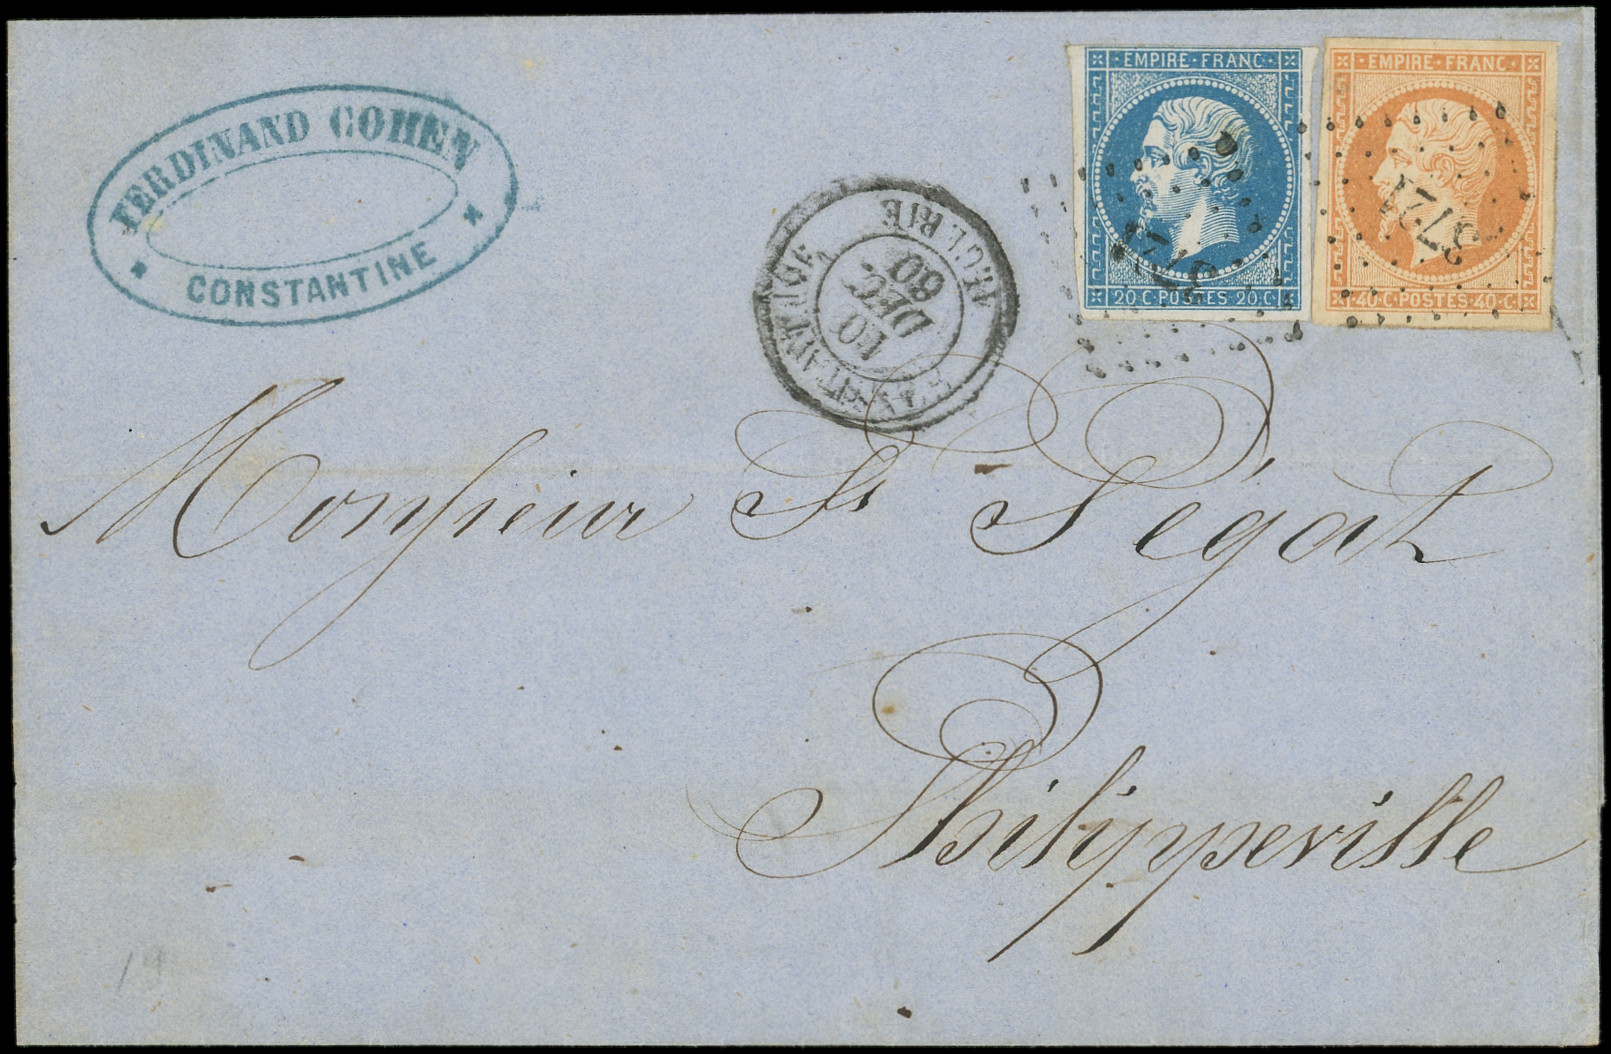 FERDINAND COHEN
CONSTANTINE
CONSTANTINE
ALGERIE
10
DEC.
60
EMPIRE·FRANC·
20·C·POSTES·20·C
EMPIRE·FRANC·
40·C·POSTES·40·C
3721
3721
Monsieur St Ségat
Philippeville